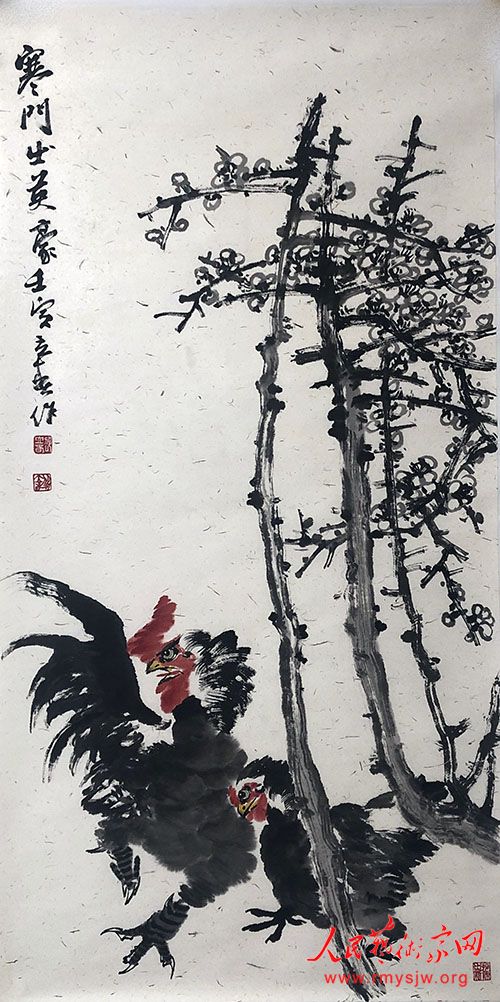 寒門出英豪壬寅立春作
人民藝術家网
www.rmysjw.org